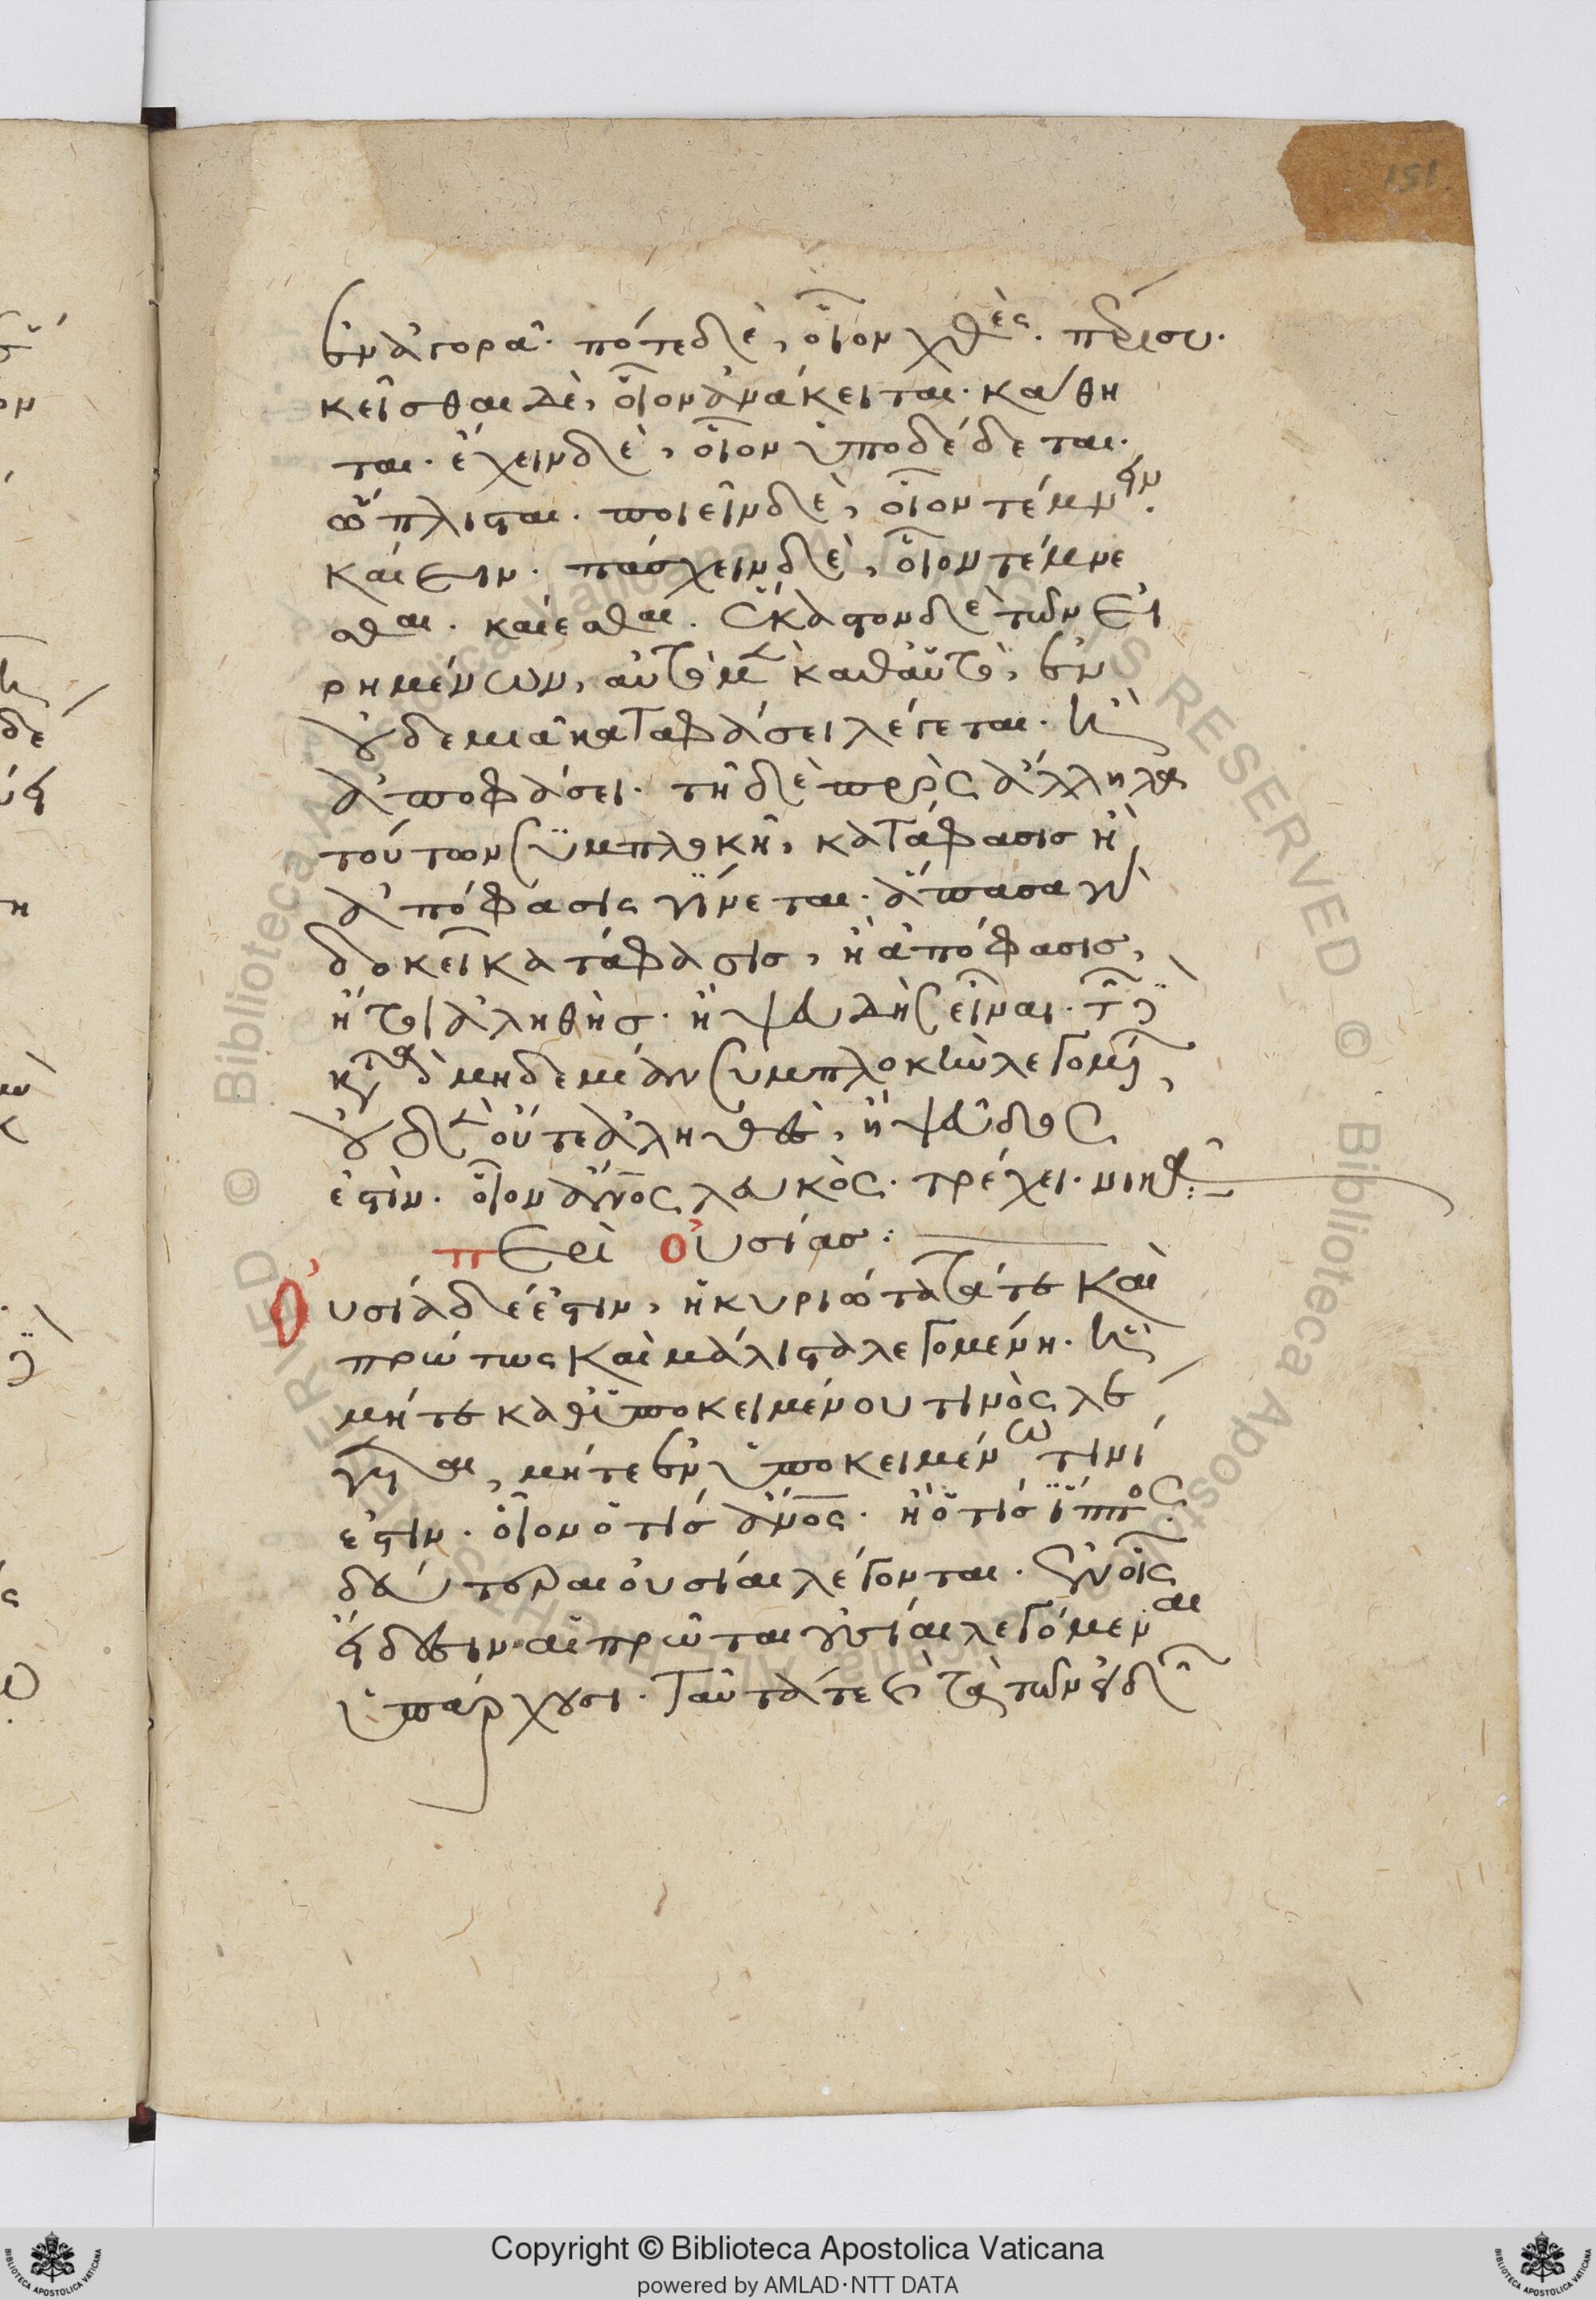 151.
ἐν ἀγορᾶ. πότε δὲ, οἷον χθὲς. πέρισυ.
κεῖσθαι δὲ, οἷον ἀνάκειται. κάθη
ται. ἔχειν δὲ, οἷον ὑποδέδεται.
ὥπλισται. ποιεῖν δὲ, οἷον τέμνειν.
καίειν. πάσχειν δὲ, οἷον τέμνε
σθαι. καίεσθαι. ἕκαστον δὲ τῶν εἰ
ρημένων, αὐτὸ μὲν καθαὑτὸ, ἐν
οὐδεμιᾶ καταφάσει λέγεται. ἢ
ἀποφάσει. τῆ δὲ πρὸς ἄλληλα
τούτων συμπλοκῆ, κατάφασις ἢ
ἀπόφασις γίνεται. ἅπασα γὰρ
δοκεῖ κατάφασις, ἢ ἀπόφασις,
ἤτοι ἀληθὴς. ἢ ψευδὴς εἶναι. τῶν
κατὰ μηδεμίαν συμπλοκὴν λεγομένων,
οὐδὲν οὔτε ἀληθὲς, ἢ ψεῦδος
ἐστὶν. οἷον ἄνος λευκὸς. τρέχει. νικᾶ:
Περὶ οὐσίας:
Οὐσία δέ ἐστιν, ἡ κυριώτατά τε καὶ
πρώτως καὶ μάλιστα λεγομένη. ἢ
μήτε καθ ὑποκειμένου τινὸς λέ
γεται, μήτε ἐν ὑποκειμένω τινί
ἐστιν. οἷον ὁ τίς ἄνος. ἢ ὁ τίς ἵππος.
δεύτεραι οὐσίαι λέγονται. ἐν οἷς
εἴδεσιν αἱ πρῶται οὐσίαι λεγόμεναι
ὑπάρχουσι. ταῦτά τε καὶ τὰ τῶν εἰδῶν
Copyright © Biblioteca Apostolica Vaticana
powered by AMLAD·NTT DATA